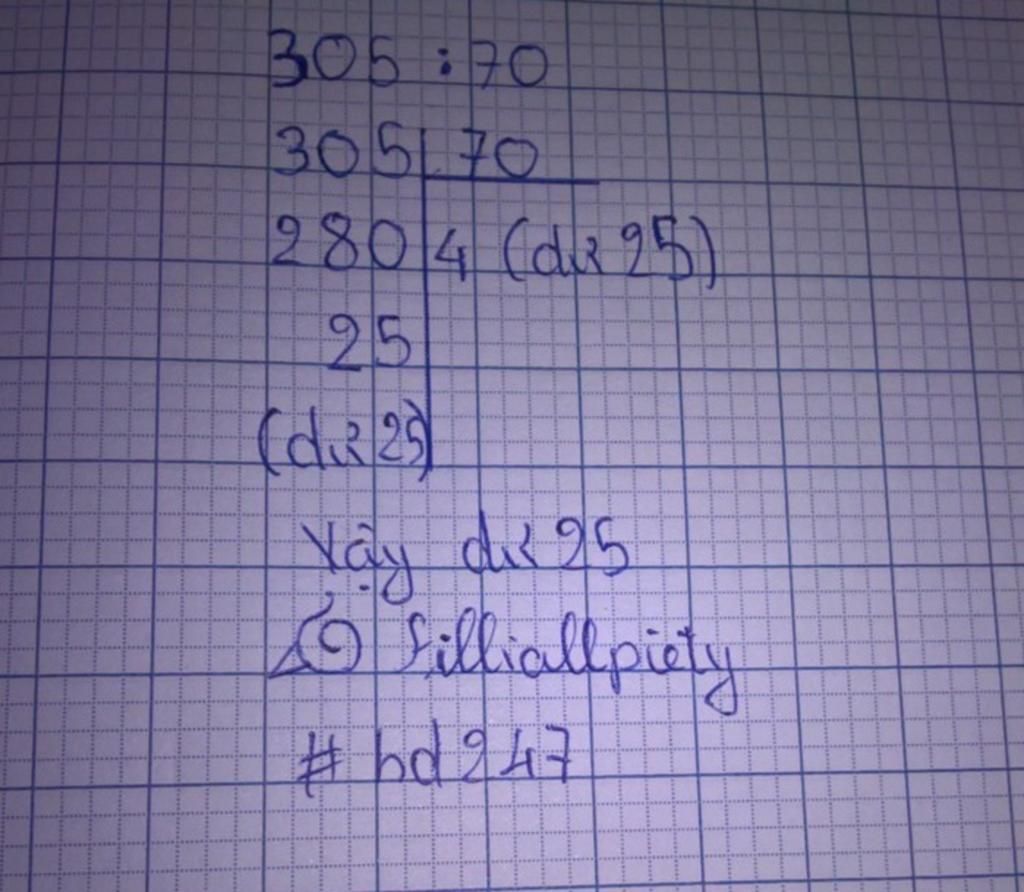 305 : 70
305 70
280 4 (dư 25)
25
(dư 25)
Vậy dư 25
@ filliallpiety
# hd247